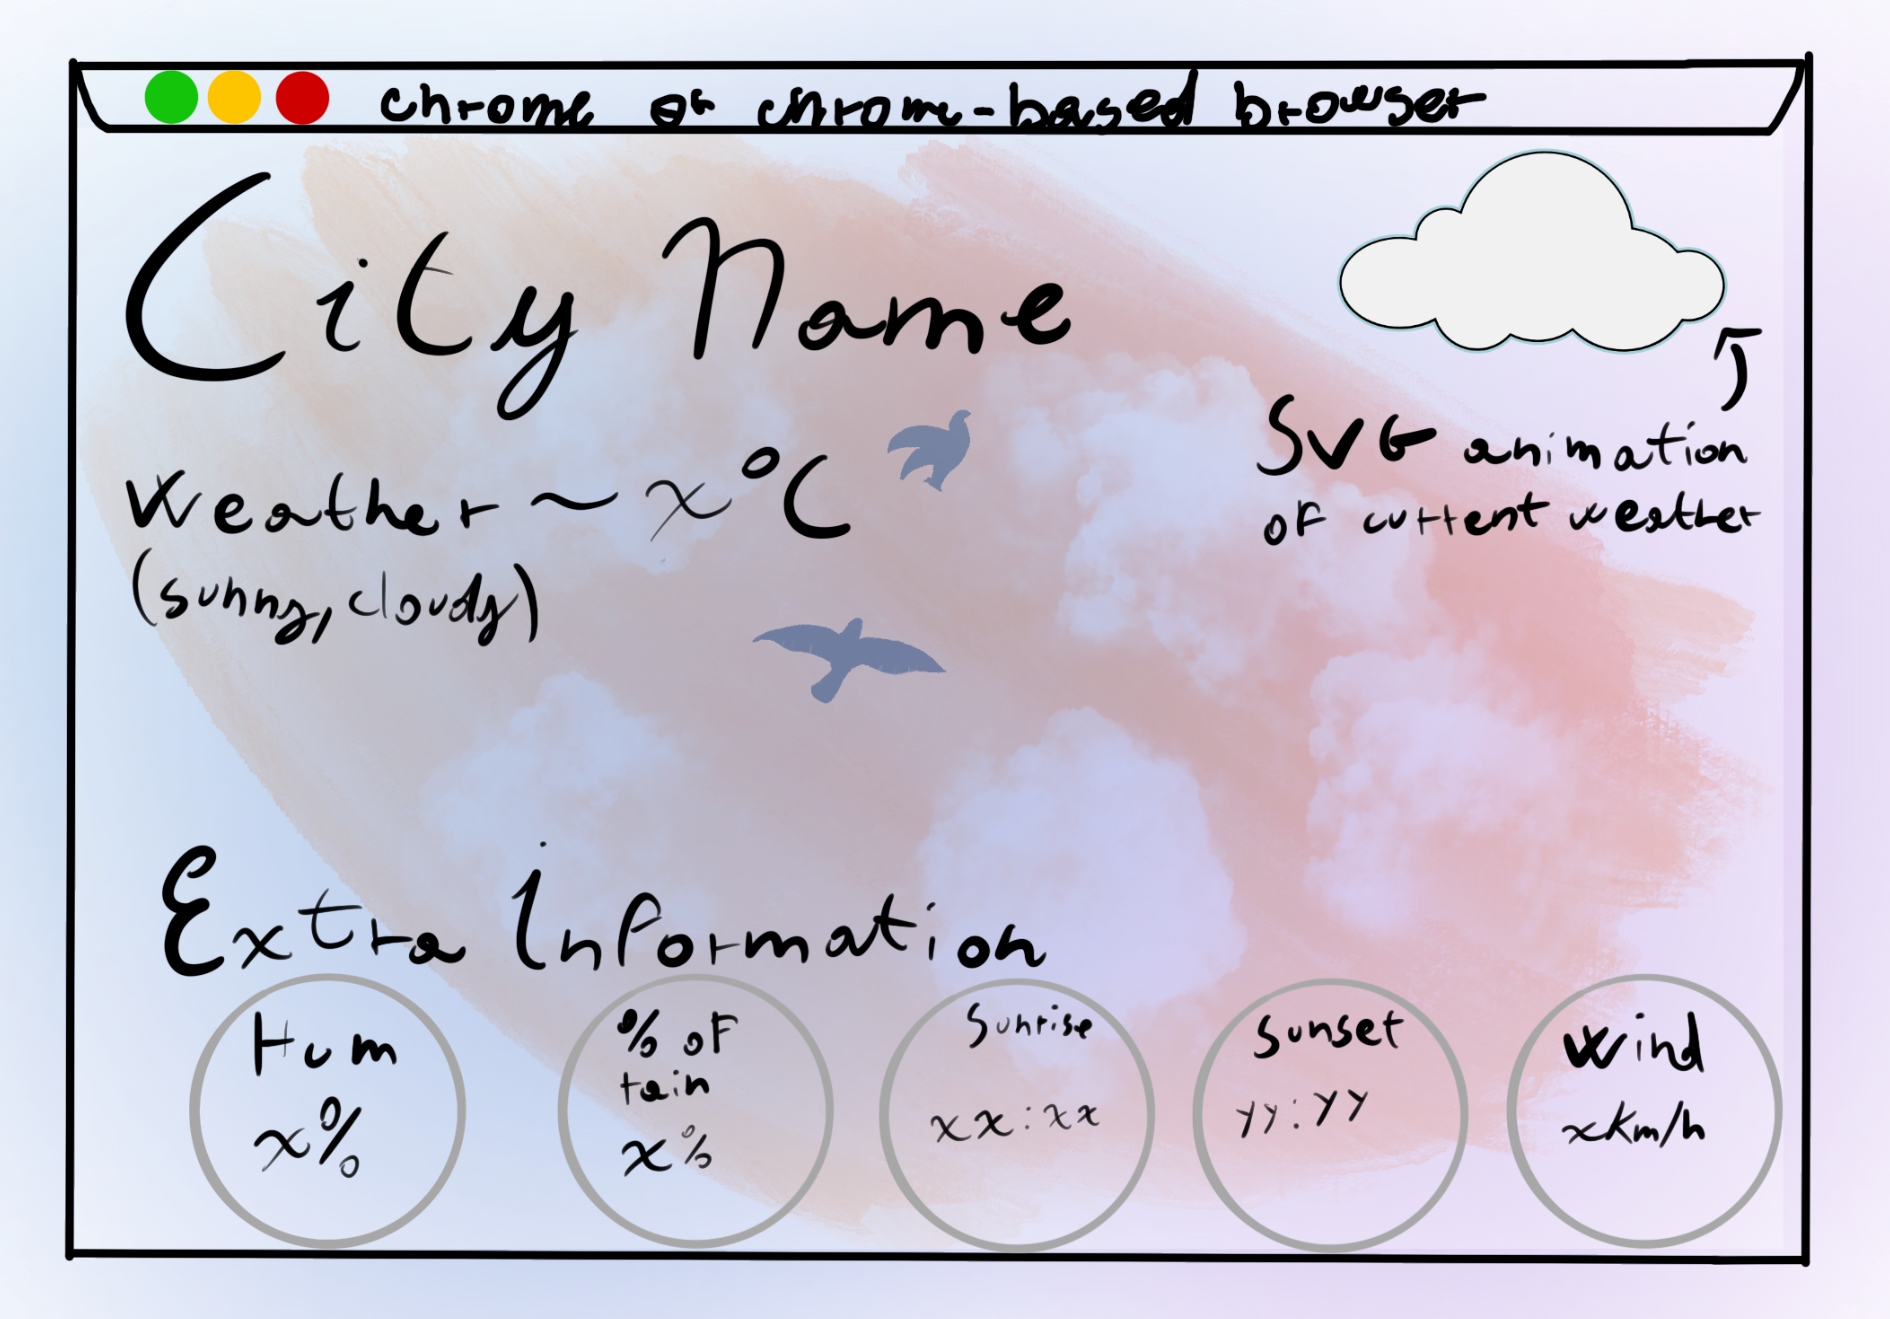 chrome or chrome-based browser
City Name
Weather ~ x°C
(sunny, cloudy)
SVG animation
of current weather
Extra Information
Hum
x%
% of
rain
x%
Sunrise
xx:xx
Sunset
yy:yy
Wind
xkm/h